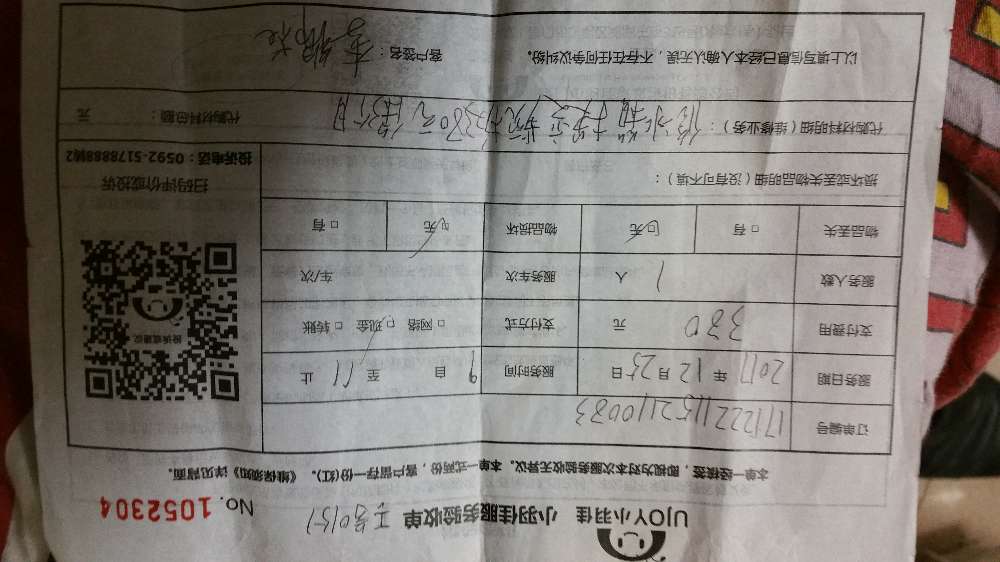 UJOY小羽佳 小羽佳服务验收单 No. 1052304
本单一经核签，即视为对本次服务验收无异议。本单一式两份，客户留存一份(红)。《维保须知》详见背面。
订单编号 1712221152110083
服务日期 2017 年 12 月 25 日 服务时间 自 9 至 11 止
支付费用 380 元 支付方式 □ 网络 □ 现金 □ 转账
服务人数 1 人 服务车次 车/次
物品丢失 □ 有 □ 无 物品损坏 □ 无 □ 有
损坏或丢失物品明细（没有可不填）：
代购材料明细（维修业务）：
代购材料总额： 元
以上填写信息已经本人确认无误，不存在任何争议纠纷。 客户签名：
投诉或建议
扫码评价或投诉
投诉电话：0592-5178888转2